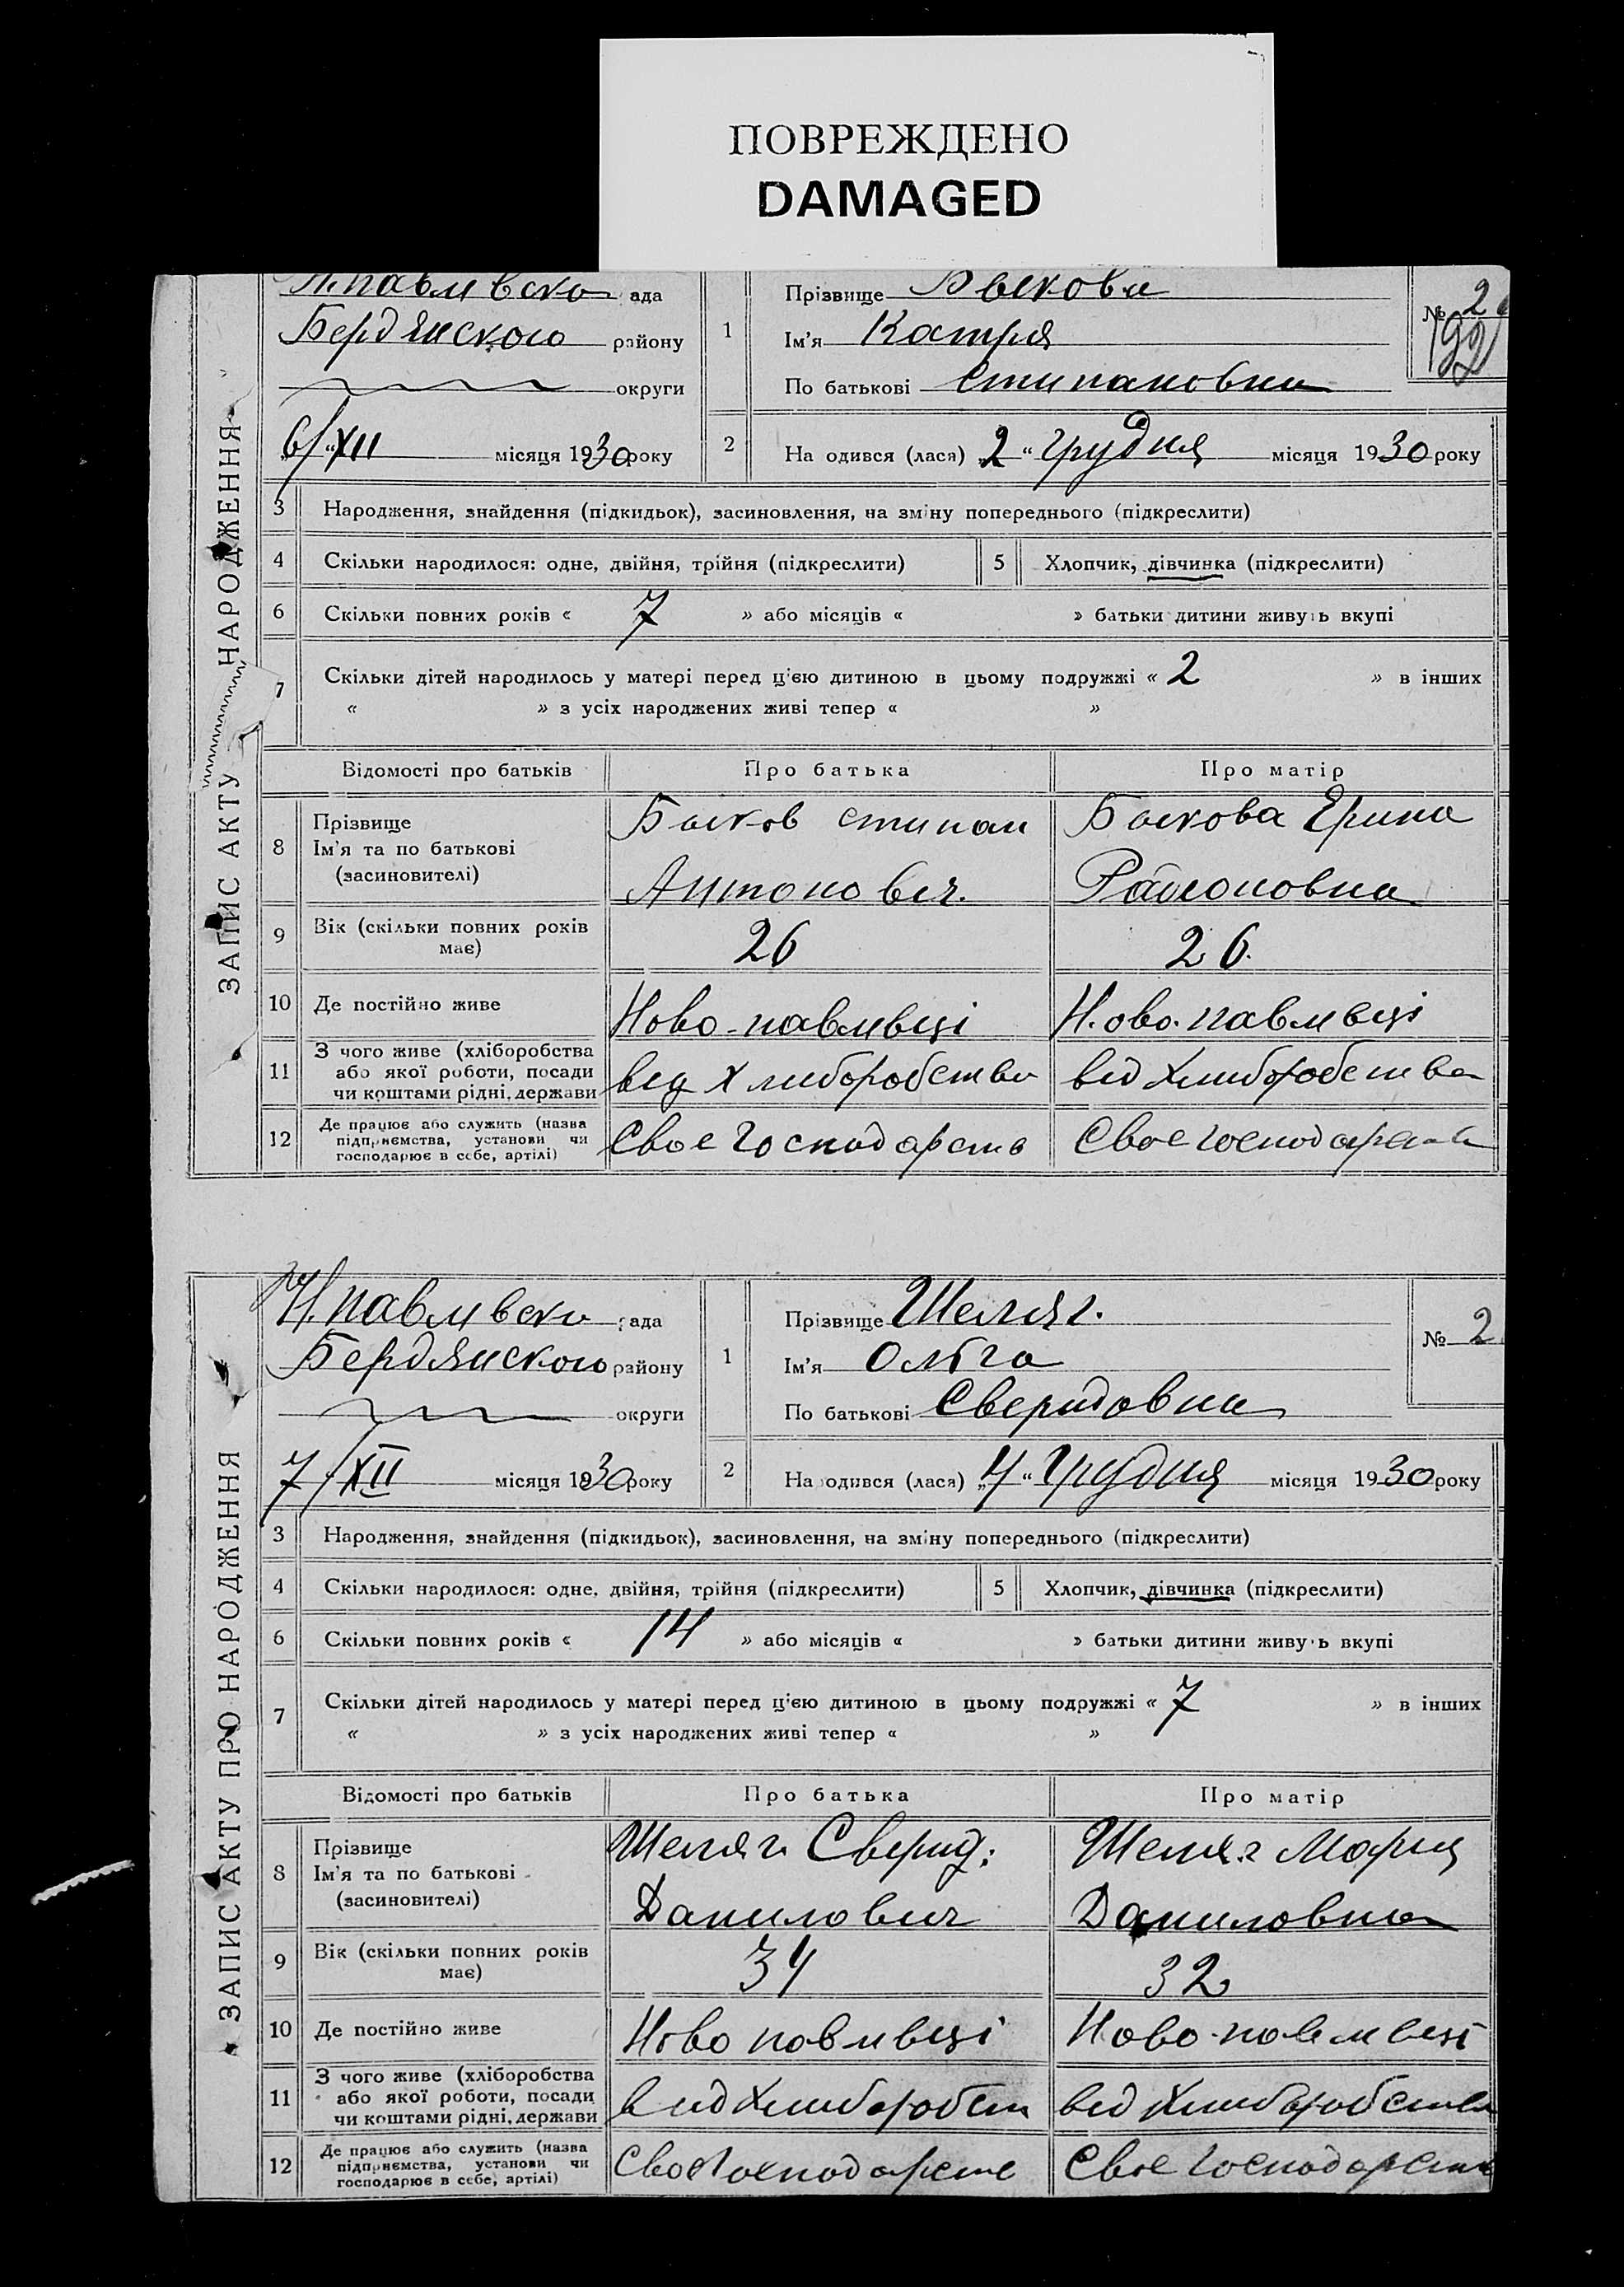 ПОВРЕЖДЕНО
DAMAGED
ЗАПИС АКТУ НАРОДЖЕННЯ
Н.павливска ада
Бердянского району
округи
6/XII місяця 1930 року
1
Прізвище Быкова
Ім'я Катря
По батькові Стипановна
№ 2
192
2
На одився (лася) „2“ грудня місяця 1930 року
3 Народження, знайдення (підкидьок), засиновлення, на зміну попереднього (підкреслити)
4 Скільки народилося: одне, двійня, трійня (підкреслити) 5 Хлопчик, дівчинка (підкреслити)
6 Скільки повних років « 7 » або місяців « » батьки дитини живуть вкупі
7 Скільки дітей народилось у матері перед цією дитиною в цьому подружжі « 2 » в інших
« » з усіх народжених живі тепер « »
Відомості про батьків Про батька Про матір
8 Прізвище Ім'я та по батькові (засиновителі)
Быков Стипан Быкова Ерина
Антонович.
9 Вік (скільки повних років має) 26 26.
10 Де постійно живе Ново-павливці Н.ово.павливці
11 З чого живе (хліборобства або якої роботи, посади чи коштами рідні, держави
вед Хлиборобства вед Хлиборобства
12 Де працює або служить (назва підприємства, установи чи господарює в себе, артілі)
Свое Господарств Свое господарств
ЗАПИС АКТУ ПРО НАРОДЖЕННЯ
Н.павливска ада
Бердянского району
округи
7/XII місяця 1930 року
1
Прізвище Шеляг.
Ім'я Ольга
По батькові Сверидовна
№ 2
2
На одився (лася) „4“ Грудня місяця 1930 року
3 Народження, знайдення (підкидьок), засиновлення, на зміну попереднього (підкреслити)
4 Скільки народилося: одне, двійня, трійня (підкреслити) 5 Хлопчик, дівчинка (підкреслити)
6 Скільки повних років « 14 » або місяців « » батьки дитини живуть вкупі
7 Скільки дітей народилось у матері перед цією дитиною в цьому подружжі « 7 » в інших
« » з усіх народжених живі тепер « »
Відомості про батьків Про батька Про матір
8 Прізвище Ім'я та по батькові (засиновителі)
Шеляг. Сверид: Шеляг Мария
Данилович Даниловна
9 Вік (скільки повних років має) 34 32
10 Де постійно живе Ново павливці Ново-павливці
11 З чого живе (хліборобства або якої роботи, посади чи коштами рідні, держави
вид Хлиборобст вед Хлиборобства
12 Де працює або служить (назва підприємства, установи чи господарює в себе, артілі)
Свое Господарств Свое Господарств